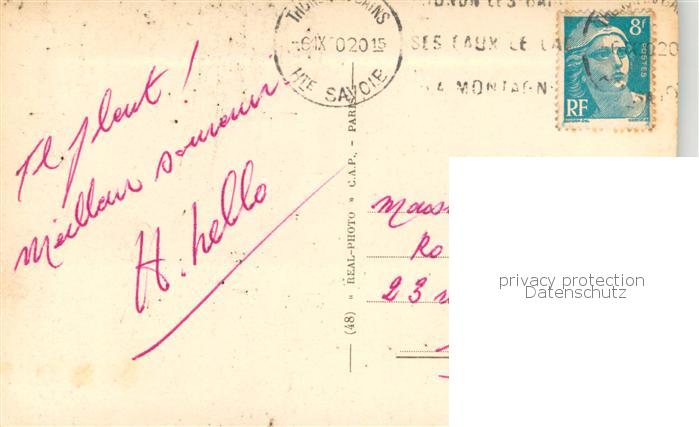 THONON-LES-BAINS
6 IX 50 2015
HTE SAVOIE
THONON LES BAI
SES EAUX LE LA
LA MONTAGN
8f
POSTES
RF
Il pleut !
Meilleur souvenir
H. hello
(48) « REAL-PHOTO » C.A.P. - PARIS
Ro
23
privacy protection
Datenschutz